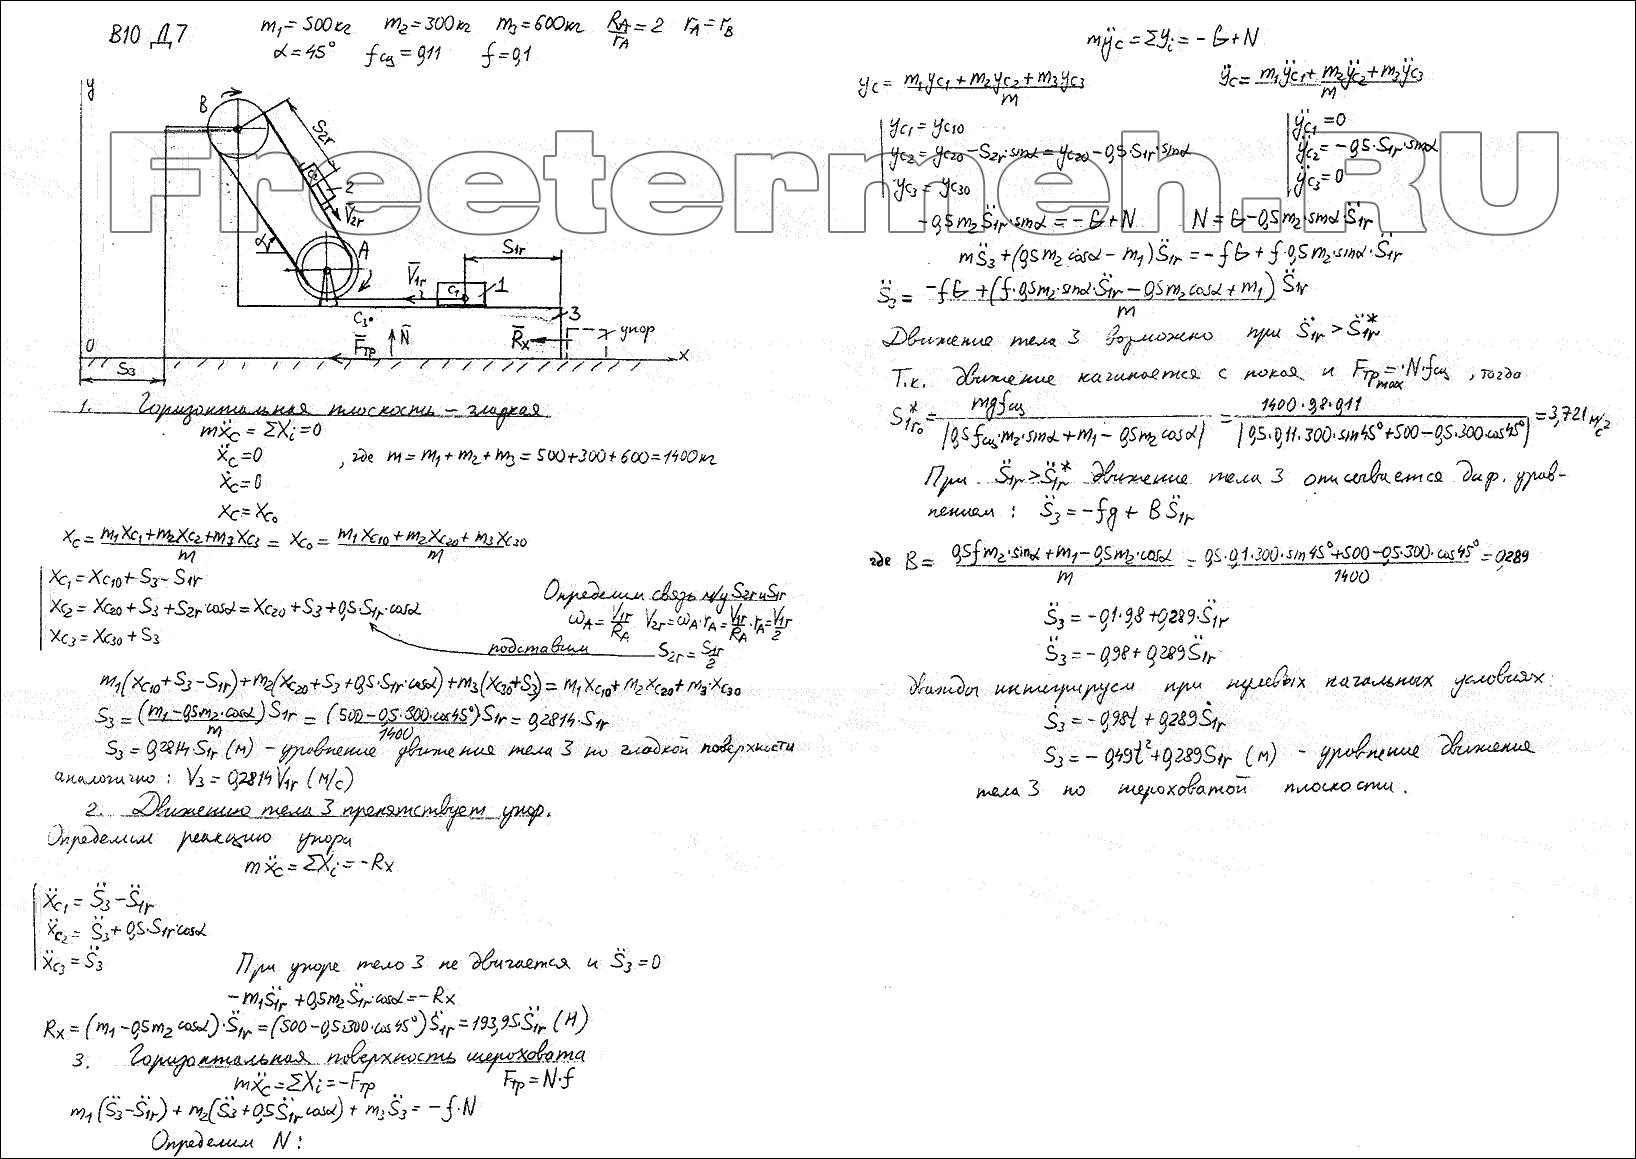 В10 Д7
m₁=500кг m₂=300кг m₃=600кг R_A/r_A=2 r_A=r_B
α=45° f_сц=0,11 f=0,1
y
B
S₂r
C₂
2
V̄₂r
A
α
S₁r
V̄₁r
C₁
1
C₃
3
упор
R̄x
N̄
F̄тр
O
x
S₃
Freetermeh.RU
1. Горизонтальная плоскость – гладкая
mẍc=ΣXi=0
ẍc=0, где m=m₁+m₂+m₃=500+300+600=1400кг
ẋc=0
xc=xc₀
xc=(m₁xc₁+m₂xc₂+m₃xc₃)/m=xc₀=(m₁xc₁₀+m₂xc₂₀+m₃xc₃₀)/m
xc₁=xc₁₀+S₃-S₁r
xc₂=xc₂₀+S₃+S₂r·cosα=xc₂₀+S₃+0,5·S₁r·cosα
xc₃=xc₃₀+S₃
Определим связь м/у S₂r и S₁r
ω_A=V₁r/R_A V₂r=ω_A·r_A=V₁r/R_A·r_A=V₁r/2
подставим S₂r=S₁r/2
m₁(xc₁₀+S₃-S₁r)+m₂(xc₂₀+S₃+0,5·S₁r·cosα)+m₃(xc₃₀+S₃)=m₁xc₁₀+m₂xc₂₀+m₃·xc₃₀
S₃=(m₁-0,5m₂·cosα)S₁r/m=(500-0,5·300·cos45°)S₁r/1400=0,2814·S₁r
S₃=0,2814·S₁r (м) – уравнение движения тела 3 по гладкой поверхности
аналогично: V₃=0,2814V₁r (м/с)
2. Движению тела 3 препятствует упор.
Определим реакцию упора
mẍc=ΣXi=-Rx
ẍc₁=S̈₃-S̈₁r
ẍc₂=S̈₃+0,5·S̈₁r·cosα
ẍc₃=S̈₃
При упоре тело 3 не двигается и S̈₃=0
-m₁S̈₁r+0,5m₂S̈₁r·cosα=-Rx
Rx=(m₁-0,5m₂cosα)·S̈₁r=(500-0,5·300·cos45°)S̈₁r=193,95·S̈₁r (Н)
3. Горизонтальная поверхность шероховата
mẍc=ΣXi=-Fтр Fтр=N·f
m₁(S̈₃-S̈₁r)+m₂(S̈₃+0,5S̈₁r cosα)+m₃S̈₃=-f·N
Определим N:
mÿc=Σyi=-G+N
yc=(m₁yc₁+m₂yc₂+m₃yc₃)/m ÿc=(m₁ÿc₁+m₂ÿc₂+m₃ÿc₃)/m
yc₁=yc₁₀ ÿc₁=0
yc₂=yc₂₀-S₂r·sinα=yc₂₀-0,5·S₁r·sinα ÿc₂=-0,5·S̈₁r·sinα
yc₃=yc₃₀ ÿc₃=0
-0,5m₂S̈₁r·sinα=-G+N N=G-0,5m₂·sinα·S̈₁r
mS̈₃+(0,5m₂cosα-m₁)S̈₁r=-fG+f·0,5m₂·sinα·S̈₁r
S̈₃=(-fG+(f·0,5m₂·sinα·S̈₁r-0,5m₂cosα+m₁)S̈₁r)/m
Движение тела 3 возможно при S̈₁r>S̈₁r*
Т.к. движение начинается с покоя и Fтр max=N·f_сц, тогда
S̈₁r₀*=mgf_сц/|0,5f_сц·m₂·sinα+m₁-0,5m₂cosα|=1400·9,8·0,11/|0,5·0,11·300·sin45°+500-0,5·300·cos45°|=3,721м/с²
При S̈₁r>S̈₁r* движение тела 3 описывается диф. урав-
нением: S̈₃=-fg+BS̈₁r
где B=(0,5fm₂·sinα+m₁-0,5m₂·cosα)/m=(0,5·0,1·300·sin45°+500-0,5·300·cos45°)/1400=0,289
S̈₃=-0,1·9,8+0,289·S̈₁r
S̈₃=-0,98+0,289S̈₁r
Дважды интегрируем при нулевых начальных условиях:
Ṡ₃=-0,98t+0,289Ṡ₁r
S₃=-0,49t²+0,289S₁r (м) – уравнение движения
тела 3 по шероховатой плоскости.